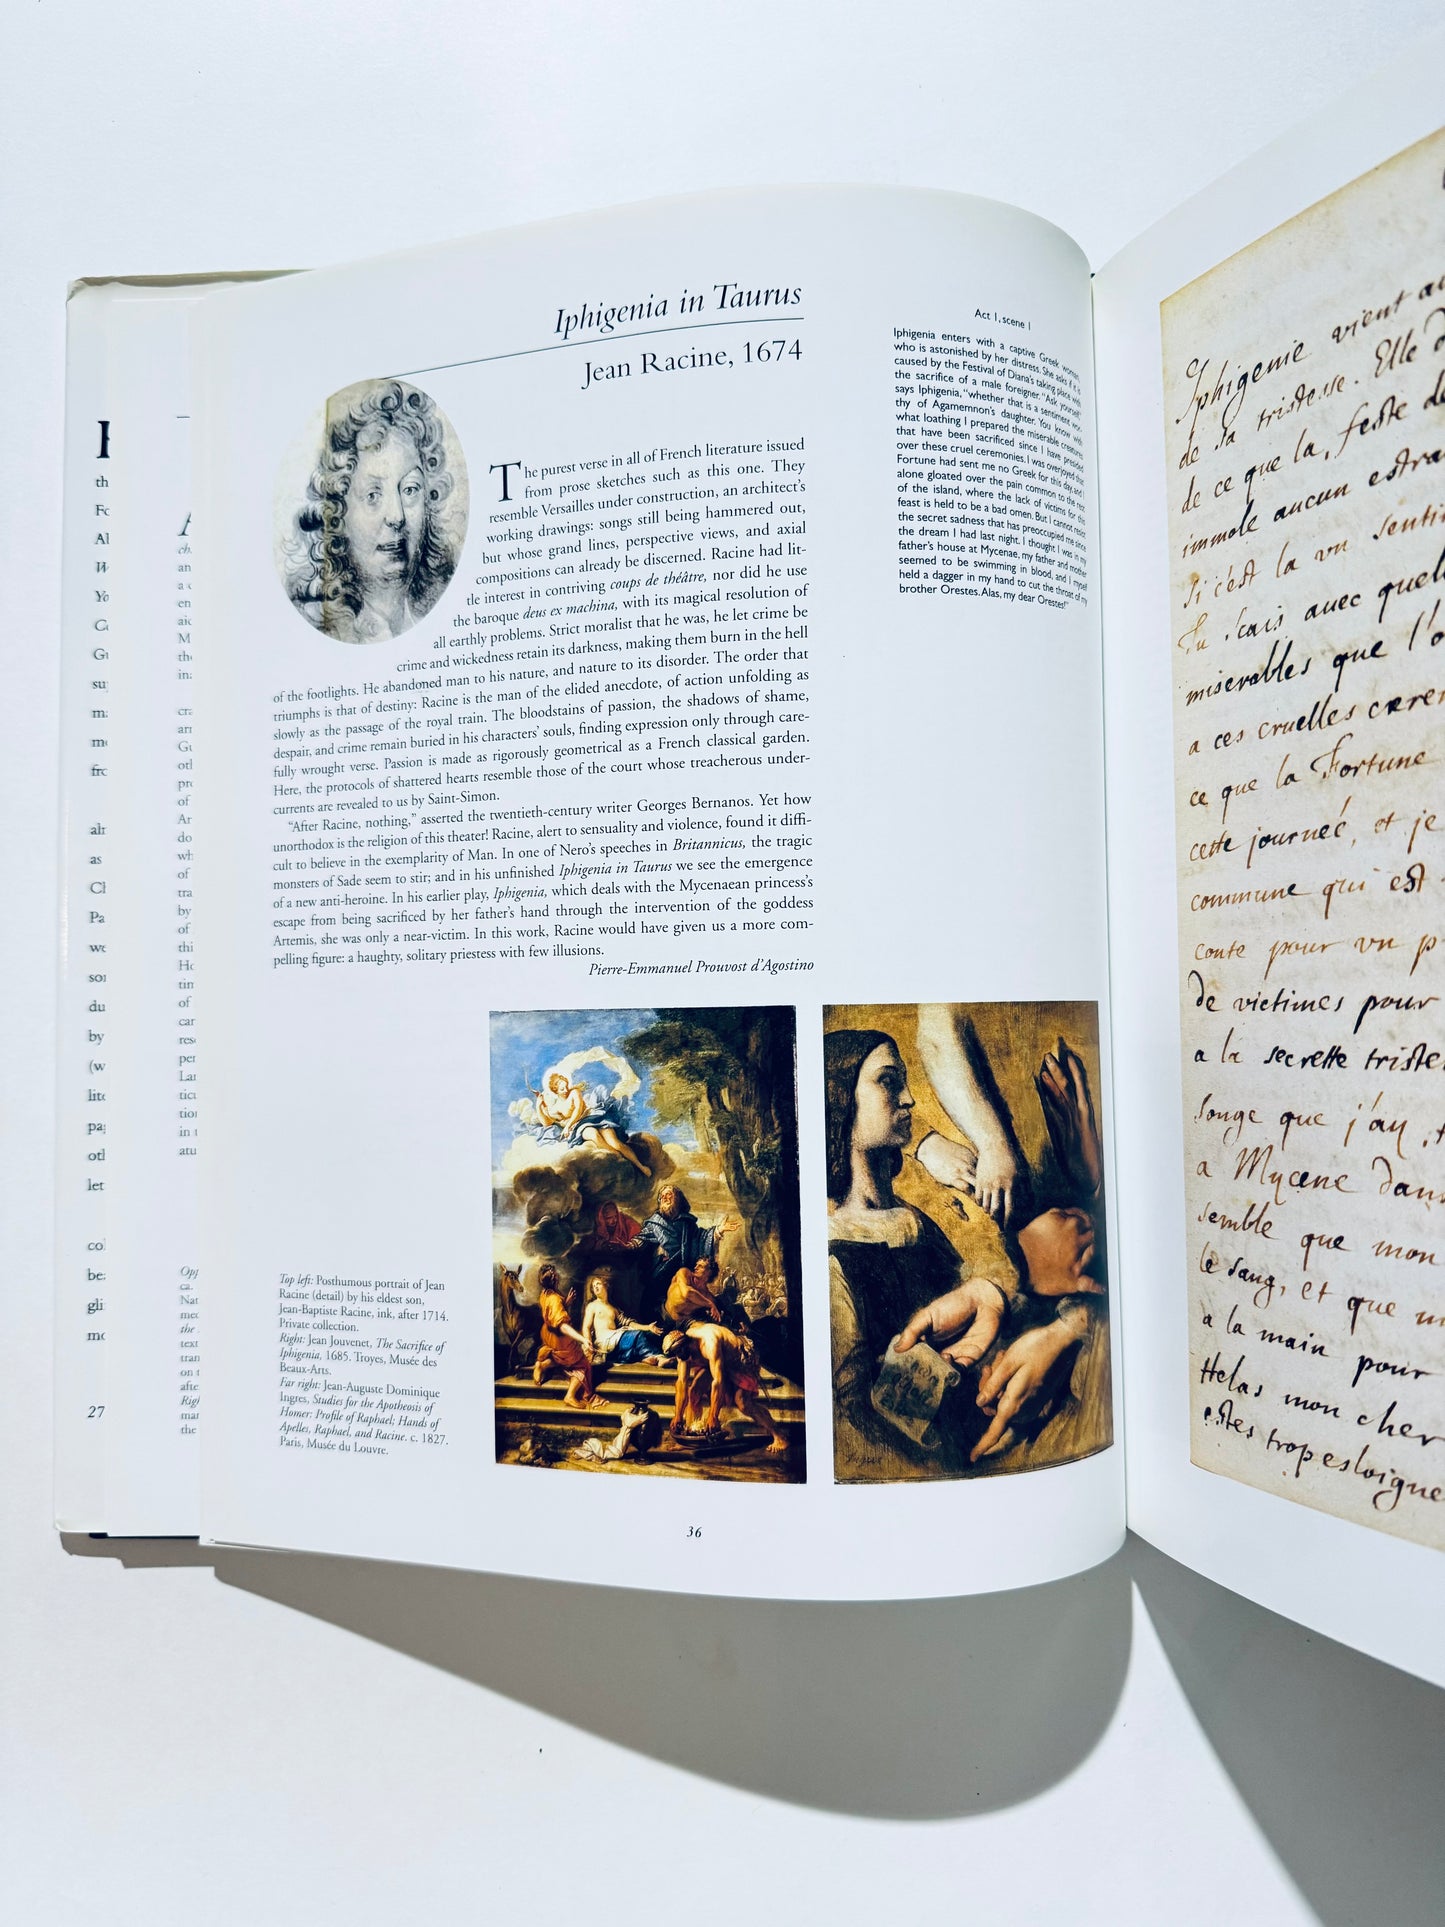 Iphigenia in Taurus
Jean Racine, 1674
The purest verse in all of French literature issued
from prose sketches such as this one. They
resemble Versailles under construction, an architect's
working drawings: songs still being hammered out,
but whose grand lines, perspective views, and axial
compositions can already be discerned. Racine had lit-
tle interest in contriving coups de théâtre, nor did he use
the baroque deus ex machina, with its magical resolution of
all earthly problems. Strict moralist that he was, he let crime be
crime and wickedness retain its darkness, making them burn in the hell
of the footlights. He abandoned man to his nature, and nature to its disorder. The order that
triumphs is that of destiny: Racine is the man of the elided anecdote, of action unfolding as
slowly as the passage of the royal train. The bloodstains of passion, the shadows of shame,
despair, and crime remain buried in his characters' souls, finding expression only through care-
fully wrought verse. Passion is made as rigorously geometrical as a French classical garden.
Here, the protocols of shattered hearts resemble those of the court whose treacherous under-
currents are revealed to us by Saint-Simon.
"After Racine, nothing," asserted the twentieth-century writer Georges Bernanos. Yet how
unorthodox is the religion of this theater! Racine, alert to sensuality and violence, found it diffi-
cult to believe in the exemplarity of Man. In one of Nero's speeches in Britannicus, the tragic
monsters of Sade seem to stir; and in his unfinished Iphigenia in Taurus we see the emergence
of a new anti-heroine. In his earlier play, Iphigenia, which deals with the Mycenaean princess's
escape from being sacrificed by her father's hand through the intervention of the goddess
Artemis, she was only a near-victim. In this work, Racine would have given us a more com-
pelling figure: a haughty, solitary priestess with few illusions.
Pierre-Emmanuel Prouvost d'Agostino
Act 1, scene 1
Iphigenia enters with a captive Greek woman,
who is astonished by her distress. She asks if it is
caused by the Festival of Diana's taking place with
the sacrifice of a male foreigner. "Ask yourself,"
says Iphigenia, "whether that is a sentiment wor-
thy of Agamemnon's daughter. You know with
what loathing I prepared the miserable creatures
that have been sacrificed since I have presided
over these cruel ceremonies. I was overjoyed that
Fortune had sent me no Greek for this day, and I
alone gloated over the pain common to the rest
of the island, where the lack of victims for this
feast is held to be a bad omen. But I cannot resist
the secret sadness that has preoccupied me since
the dream I had last night. I thought I was in my
father's house at Mycenae, my father and mother
seemed to be swimming in blood, and I myself
held a dagger in my hand to cut the throat of my
brother Orestes. Alas, my dear Orestes!"
Top left: Posthumous portrait of Jean
Racine (detail) by his eldest son,
Jean-Baptiste Racine, ink, after 1714.
Private collection.
Right: Jean Jouvenet, The Sacrifice of
Iphigenia, 1685. Troyes, Musée des
Beaux-Arts.
Far right: Jean-Auguste Dominique
Ingres, Studies for the Apotheosis of
Homer: Profile of Raphael; Hands of
Apelles, Raphael, and Racine. c. 1827.
Paris, Musée du Louvre.
36
27
Iphigenie vient
de sa tristesse. Elle
de ce que la feste
immole aucun
si c'est la un
Tu scais avec
miserables que
a ces cruelles
ce que la Fortune
cette journeé, et je
commune qui est
conte pour un
de victimes pour
a la secrette
songe que j'ay
a Mycene dans
semble que mon
le sang, et que
a la main pour
Helas mon cher
estes trop esloigné